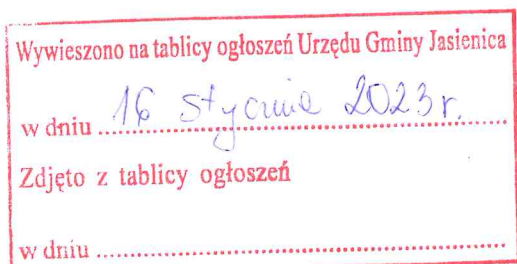 Wywieszono na tablicy ogłoszeń Urzędu Gminy Jasienica
w dniu 16 stycznia 2023 r.
Zdjęto z tablicy ogłoszeń
w dniu